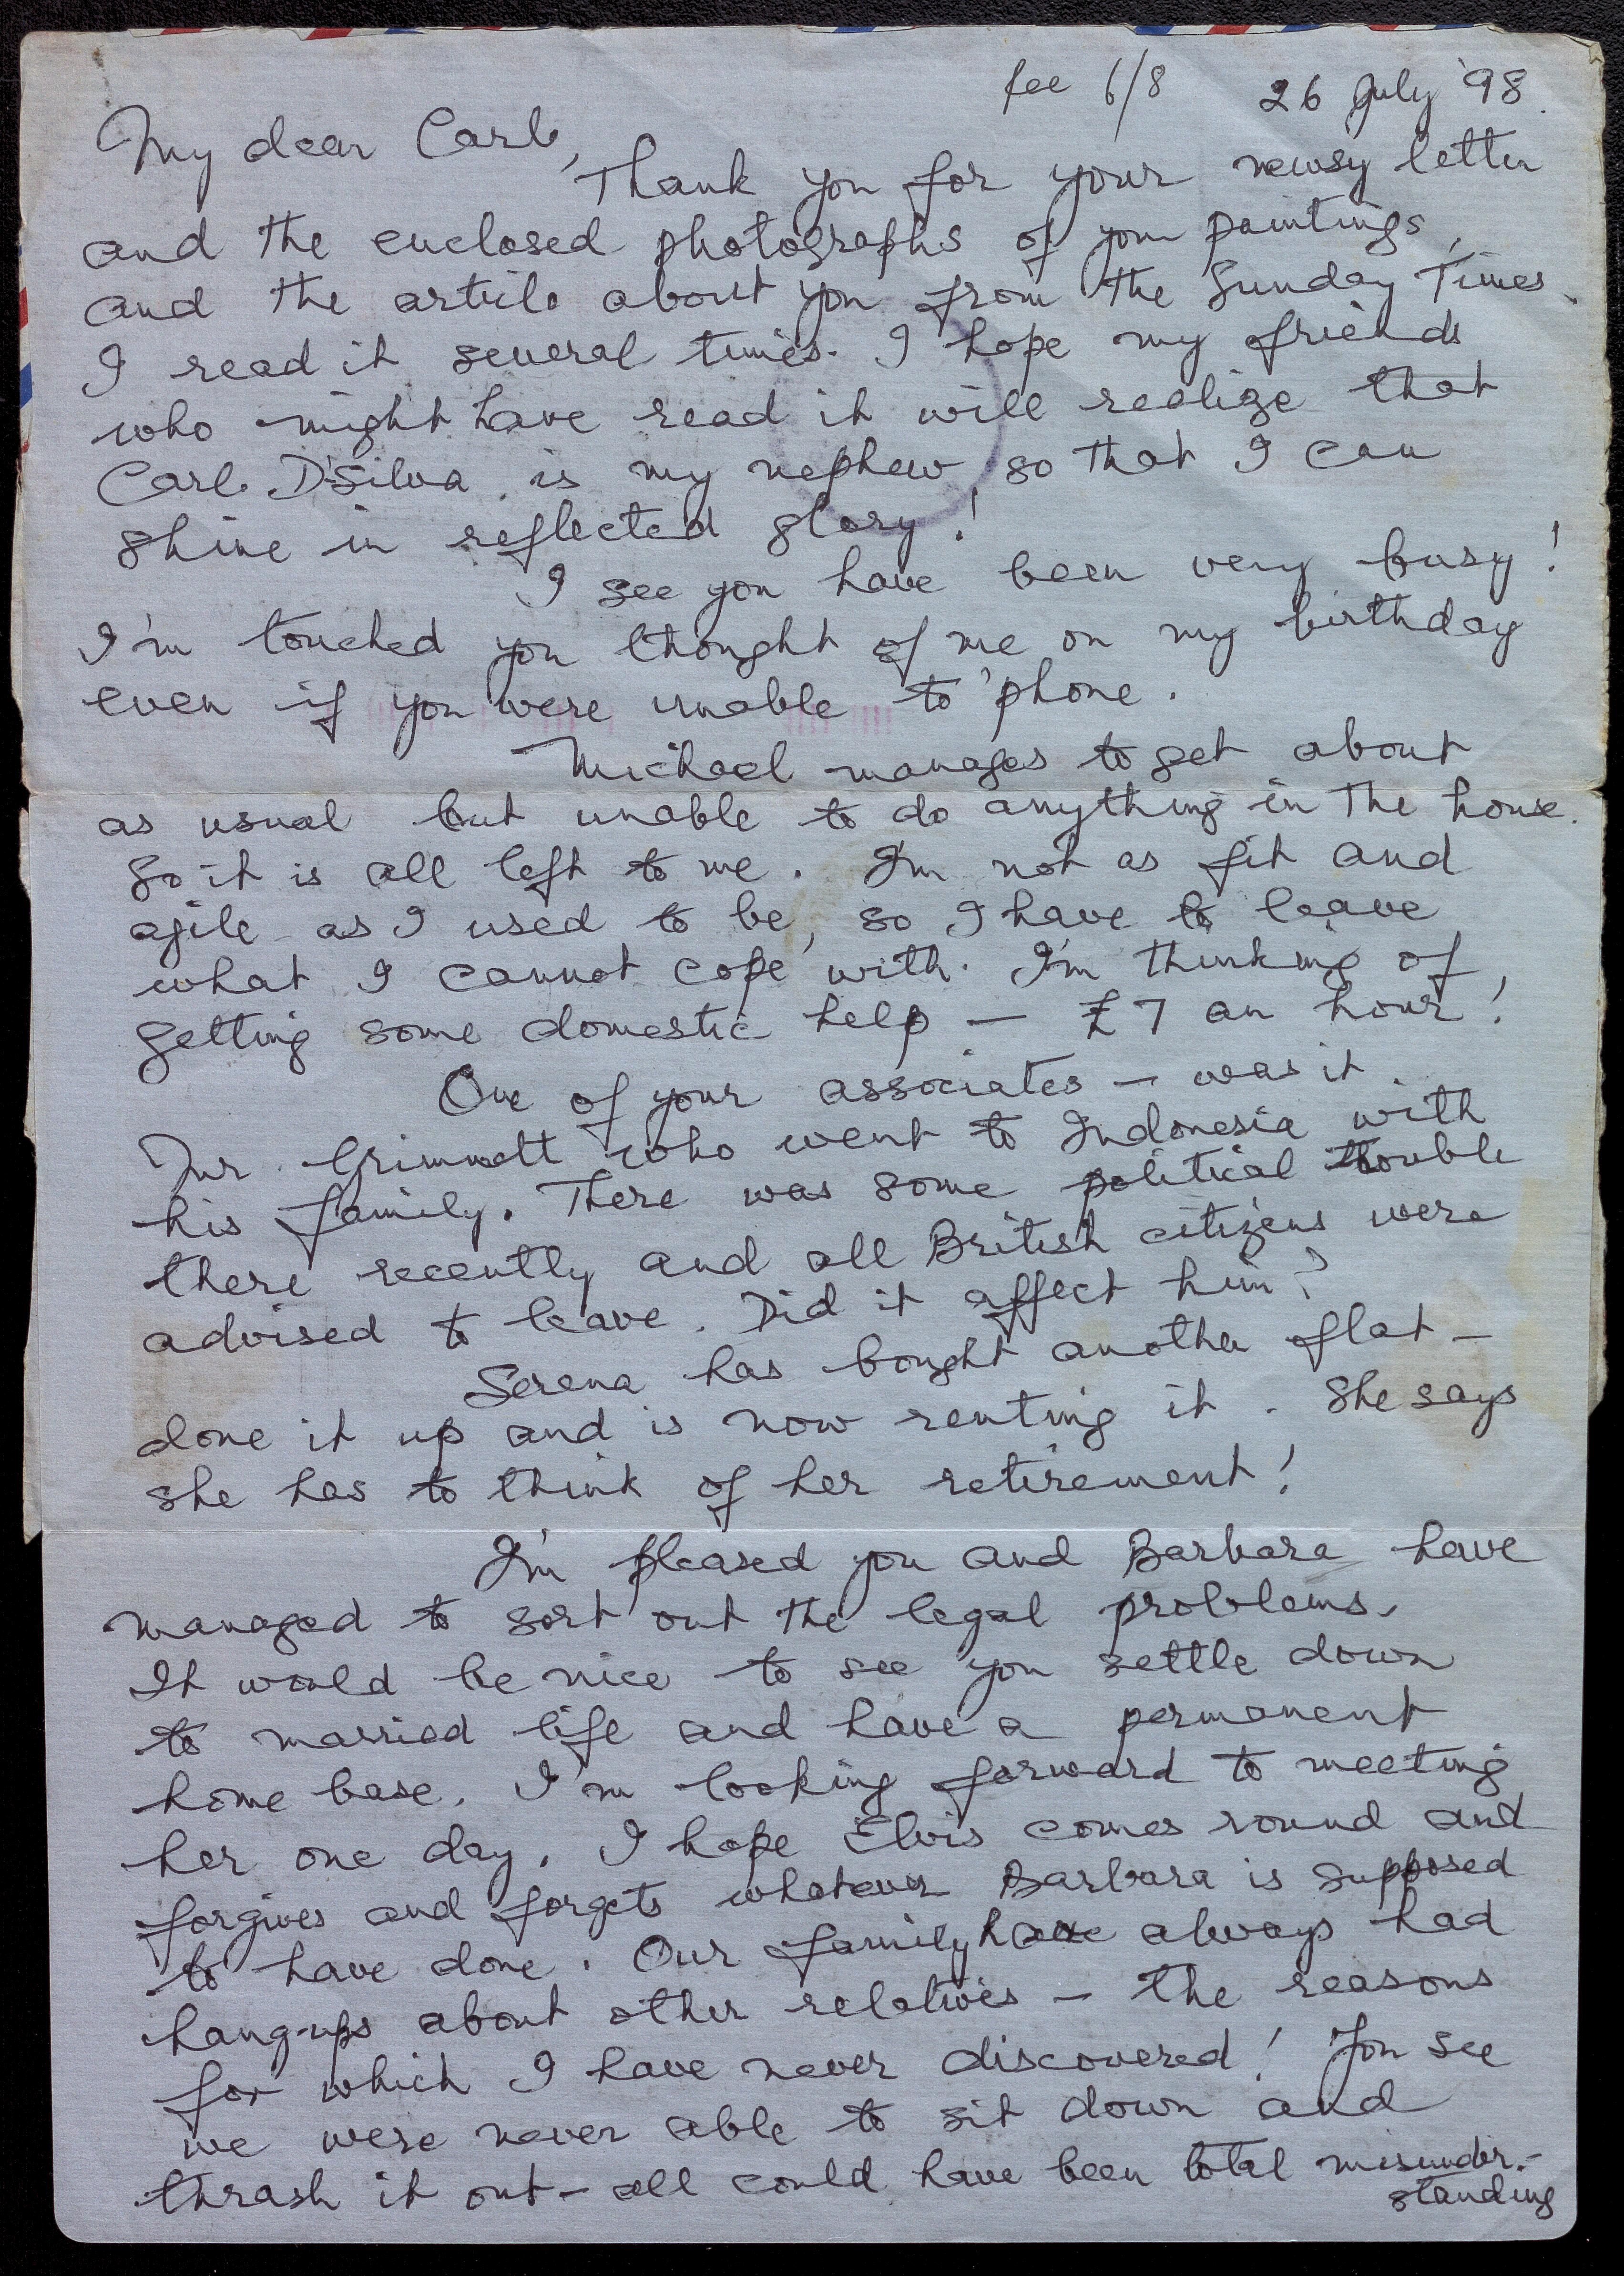 fee 6/8 26 July '98.
My dear Carl,
Thank you for your newsy letter
and the enclosed photographs of your paintings,
and the article about you from the Sunday Times.
I read it several times. I hope my friends
who might have read it will realize that
Carl D'Silva is my nephew, so that I can
shine in reflected glory!
I see you have been very busy!
I'm touched you thought of me on my birthday
even if you were unable to 'phone.
Michael manages to get about
as usual but unable to do anything in the house.
So it is all left to me. I'm not as fit and
agile as I used to be, so I have to leave
what I cannot cope with. I'm thinking of
getting some domestic help — £7 an hour!
One of your associates — was it
Mr. Grimmett who went to Indonesia with
his family. There was some political trouble
there recently and all British citizens were
advised to leave. Did it affect him?
Serena has bought another flat —
done it up and is now renting it. She says
she has to think of her retirement!
I'm pleased you and Barbara have
managed to sort out the legal problems.
It would be nice to see you settle down
to married life and have a permanent
home base. I'm looking forward to meeting
her one day. I hope Elvis comes round and
forgives and forgets whatever Barbara is supposed
to have done. Our family have always had
hang-ups about other relatives — the reasons
for which I have never discovered! You see
we were never able to sit down and
thrash it out — all could have been total misunder-
standing